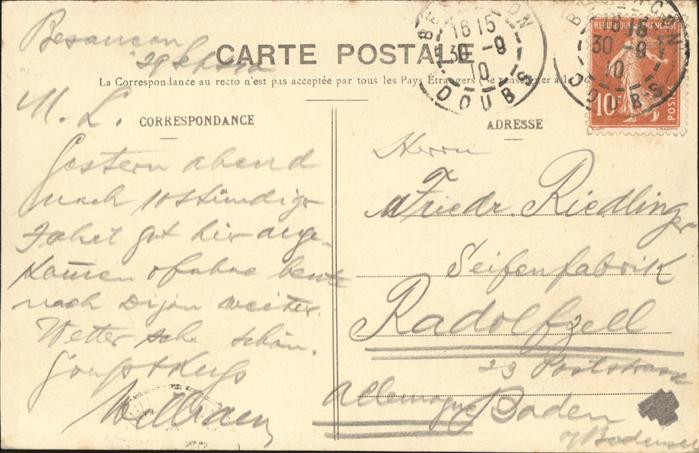 Besançon
29 Sept 10
CARTE POSTALE
La Correspondance au recto n'est pas acceptée par tous les Pays Étrangers (Se renseigner à la
M. L.
CORRESPONDANCE
Gestern abend
nach 10stündiger
Fahrt gut hier ange-
kommen fahre heute
nach Dijon weiter.
Wetter sehr schön.
Gruß & Kuß
ADRESSE
Herrn
Friedr. Riedlinger
Seifenfabrik
Radolfzell
23 Poststrasse
Allemagne Baden
a/Bodensee
BESANÇON
16 15
30 -9
10
DOUBS
REPUBLIQUE FRANÇAISE
10
POSTES